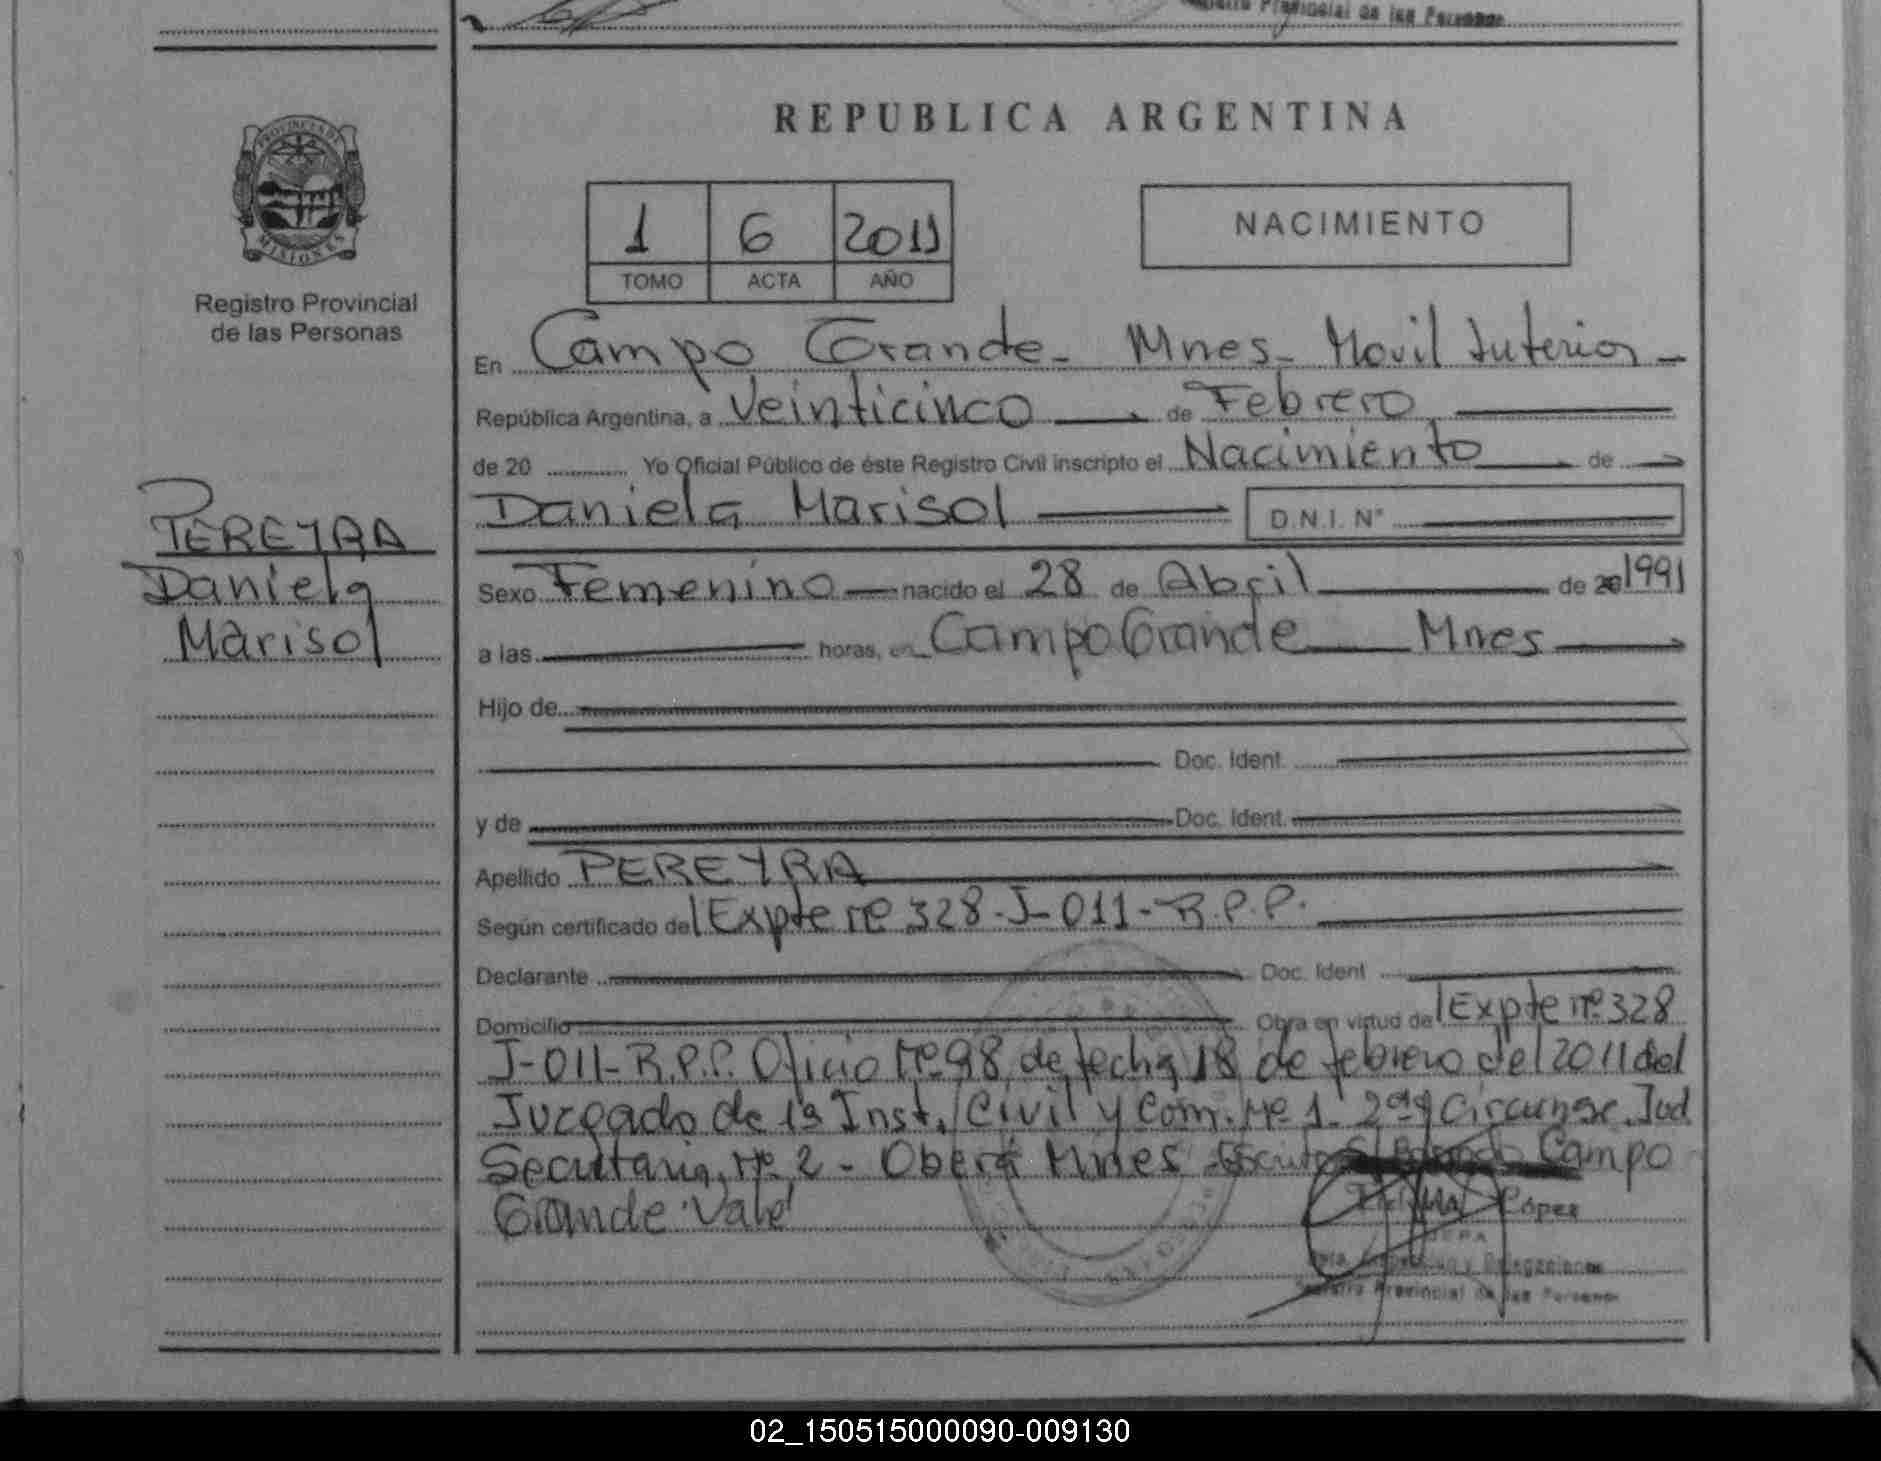 Registro Provincial de las Personas
REPUBLICA ARGENTINA
PROVINCIA DE
MISIONES
Registro Provincial
de las Personas
1 6 2011
TOMO ACTA AÑO
NACIMIENTO
En Campo Grande - Mnes - Movil Interior -
República Argentina, a Veinticinco de Febrero
de 20 Yo Oficial Público de éste Registro Civil inscripto el Nacimiento de
Daniela Marisol D.N.I. N°
PEREYRA
Daniela
Marisol
Sexo Femenino nacido el 28 de Abril de 20 1991
a las horas, en Campo Grande Mnes
Hijo de
Doc. Ident.
y de Doc. Ident.
Apellido PEREYRA
Según certificado del Expte nº 328-J-011-R.P.P.
Declarante Doc. Ident
Domicilio Obra en virtud del Expte nº 328
J-011-R.P.P. Oficio Nº 98 de fecha 18 de febrero del 2011 del
Juzgado de 1ª Inst. Civil y Com. Nº 1 2da Circunsc. Jud
Secretaria Nº 2 - Oberá Mnes Campo
Grande Vale
López
Registro Provincial de las Personas
02_150515000090-009130